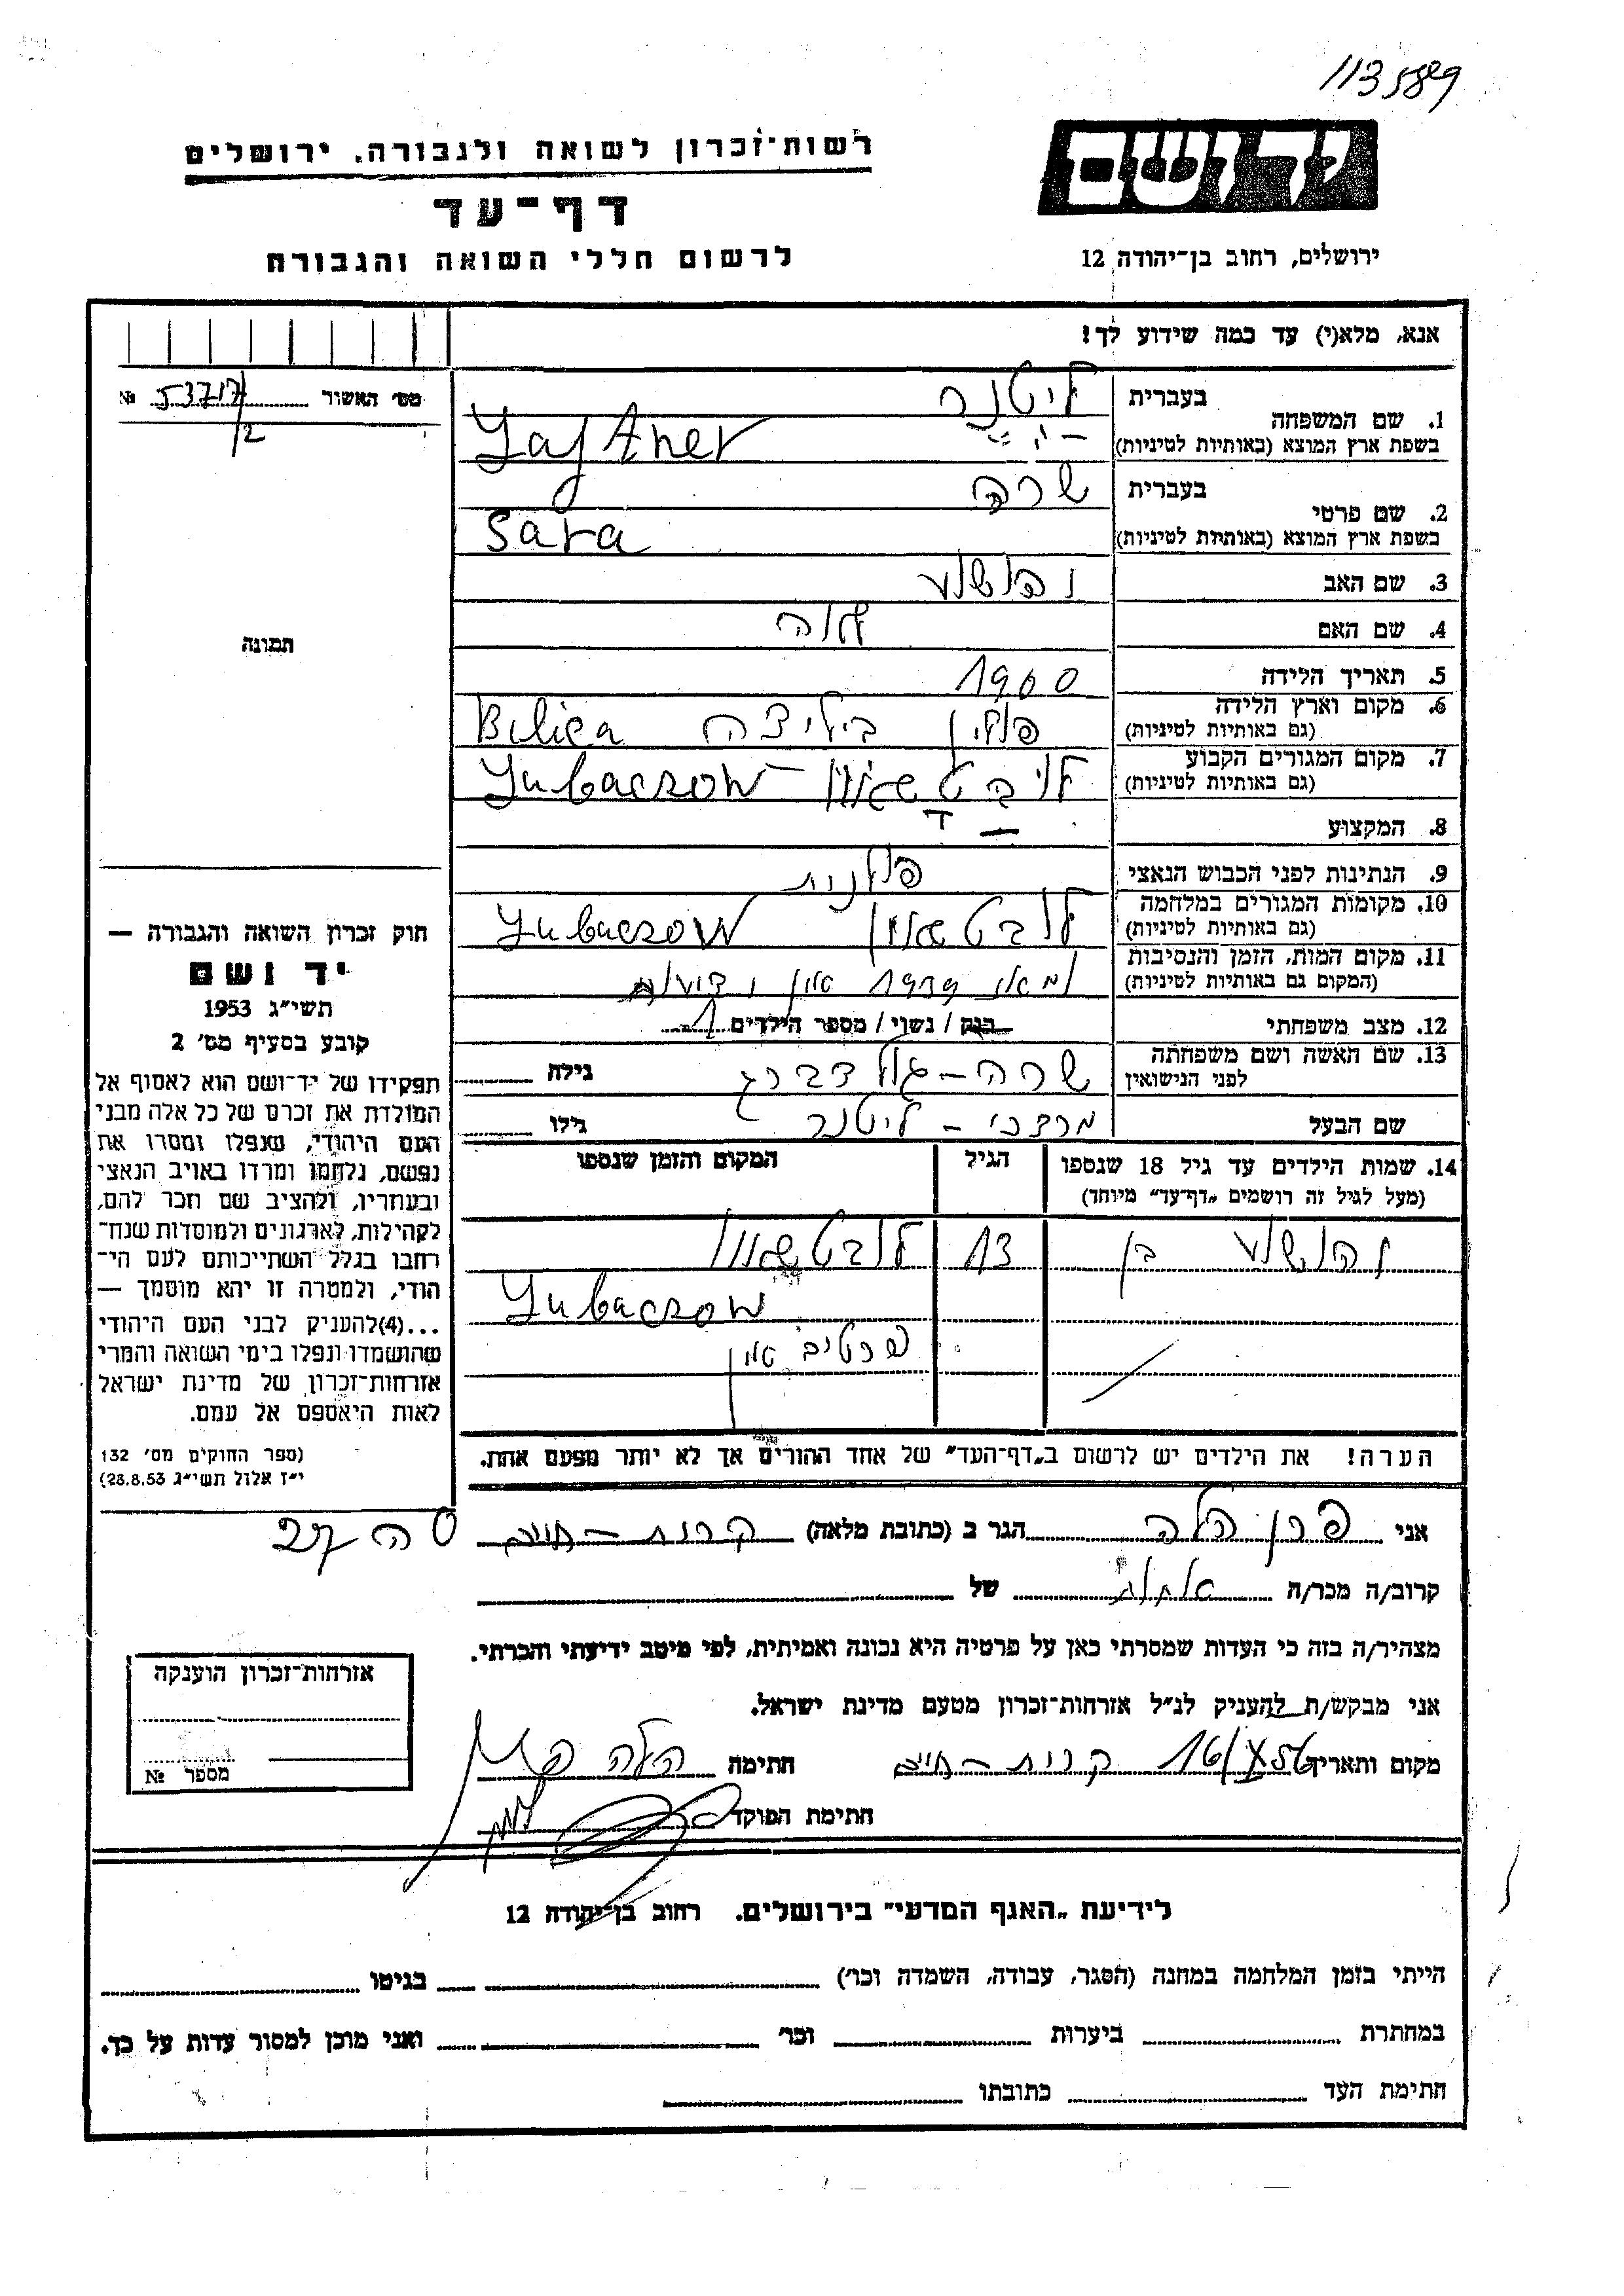 1135589
רשות־זכרון לשואה ולגבורה. ירושלים
יד ושם
דף־עד
לרשום חללי השואה והגבורה
ירושלים, רחוב בן־יהודה 12
אנא, מלא(י) עד כמה שידוע לך!
מס' האשור 53717 №
/2
בעברית ליטנר
1. שם המשפחה
בשפת ארץ המוצא (באותיות לטיניות) Lajtner
בעברית שרה
2. שם פרטי
בשפת ארץ המוצא (באותיות לטיניות) Sara
3. שם האב יהושע
4. שם האם
תמונה
5. תאריך הלידה 1900
6. מקום וארץ הלידה פולין ביליצה Bilica
(גם באותיות לטיניות)
7. מקום המגורים הקבוע Lubaczow
(גם באותיות לטיניות)
8. המקצוע —
9. הנתינות לפני הכבוש הנאצי פולנית
10. מקומות המגורים במלחמה Lubaczow
(גם באותיות לטיניות)
11. מקום המות, הזמן והנסיבות 1939 אין ידיעות
(המקום גם באותיות לטיניות)
12. מצב משפחתי רווק / נשוי / מספר הילדים 1
13. שם האשה ושם משפחתה שרה – גולדברג גילה
לפני הנישואין
שם הבעל מרדכי – ליטנר גילו
14. שמות הילדים עד גיל 18 שנספו הגיל המקום והזמן שנספו
(מעל לגיל זה רושמים „דף־עד” מיוחד)
יהושע בן 13
Lubaczow
פרטים אין
הערה! את הילדים יש לרשום ב„דף־העד” של אחד ההורים אך לא יותר מפעם אחת.
חוק זכרון השואה והגבורה —
יד ושם
תשי״ג 1953
קובע בסעיף מס' 2
תפקידו של יד־ושם הוא לאסוף אל
המולדת את זכרם של כל אלה מבני
העם היהודי, שנפלו ומסרו את
נפשם, נלחמו ומרדו באויב הנאצי
ובעוזריו, ולהציב שם וזכר להם,
לקהילות, לארגונים ולמוסדות שנח־
רבו בגלל השתייכותם לעם הי־
הודי, ולמטרה זו יהא מוסמך —
...(4)להעניק לבני העם היהודי
שהושמדו ונפלו בימי השואה והמרי
אזרחות־זכרון של מדינת ישראל
לאות היאספם אל עמם.
(ספר החוקים מס' 132
י״ז אלול תשי״ג 28.8.53)
אני פרן הלה הגר ב (כתובת מלאה) קרית – חיים 27
קרוב/ה מכר/ה של
מצהיר/ה בזה כי העדות שמסרתי כאן על פרטיה היא נכונה ואמיתית, לפי מיטב ידיעתי והכרתי.
אני מבקש/ת להעניק לנ״ל אזרחות־זכרון מטעם מדינת ישראל.
מקום ותאריך קרית – חיים חתימה הלה
חתימת הפוקד
אזרחות־זכרון הוענקה
מספר №
לידיעת „האגף המדעי” בירושלים. רחוב בן־יהודה 12
הייתי בזמן המלחמה במחנה (הסגר, עבודה, השמדה וכו') בגיטו
במחתרת ביערות וכו' ואני מוכן למסור עדות על כך.
חתימת העד כתובתו